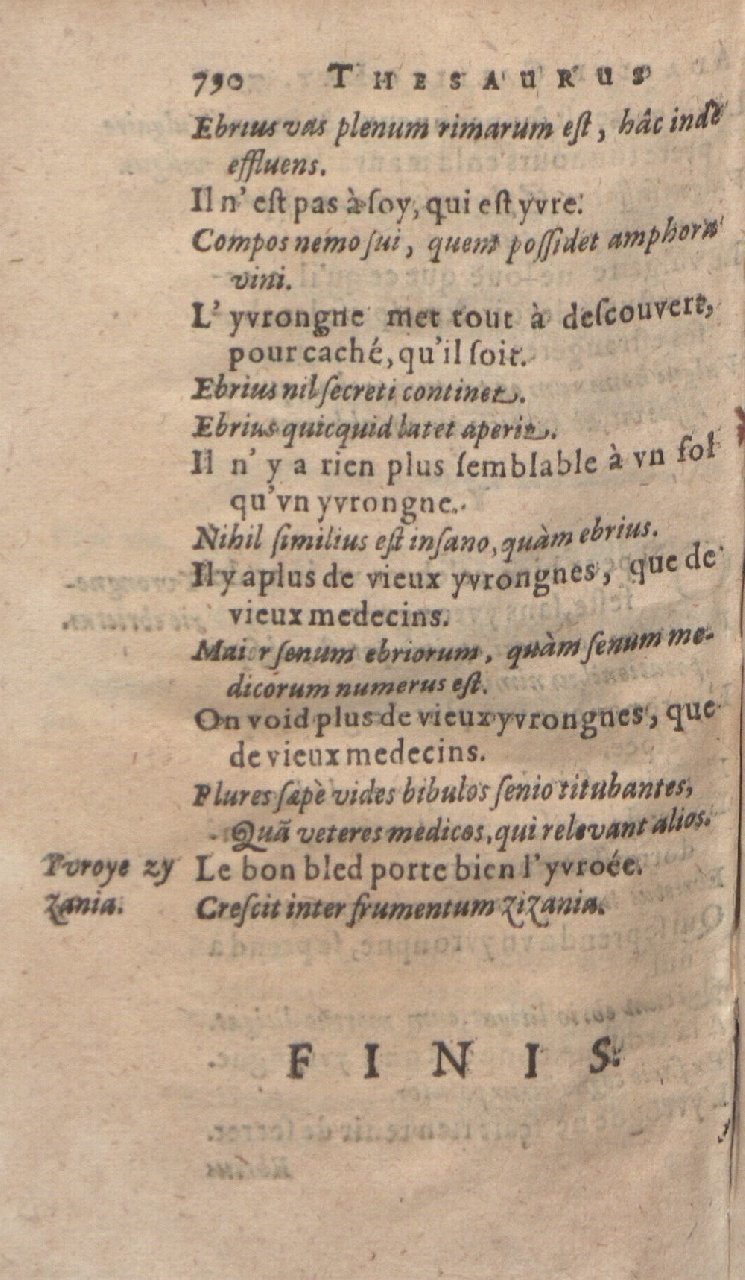 790 THESAURUS
Ebrius vas plenum rimarum est, hâc inde
effluens.
Il n'est pas à soy, qui est yvre.
Compos nemo sui, quem possidet amphora
vini.
L'yvrongne met tout à descouvert,
pour caché, qu'il soit.
Ebrius nil secreti continet.
Ebrius quicquid latet aperit.
Il n'y a rien plus semblable à vn fol
qu'vn yvrongne.
Nihil similius est insano, quàm ebrius.
Il y a plus de vieux yvrongnes, que de
vieux medecins.
Maior senum ebriorum, quàm senum me-
dicorum numerus est.
On void plus de vieux yvrongnes, que
de vieux medecins.
Plures sæpè vides bibulos senio titubantes,
Quã veteres medicos, qui relevant alios.
Yvroye zy Le bon bled porte bien l'yvroée.
zania. Crescit inter frumentum zizania.
FINIS.